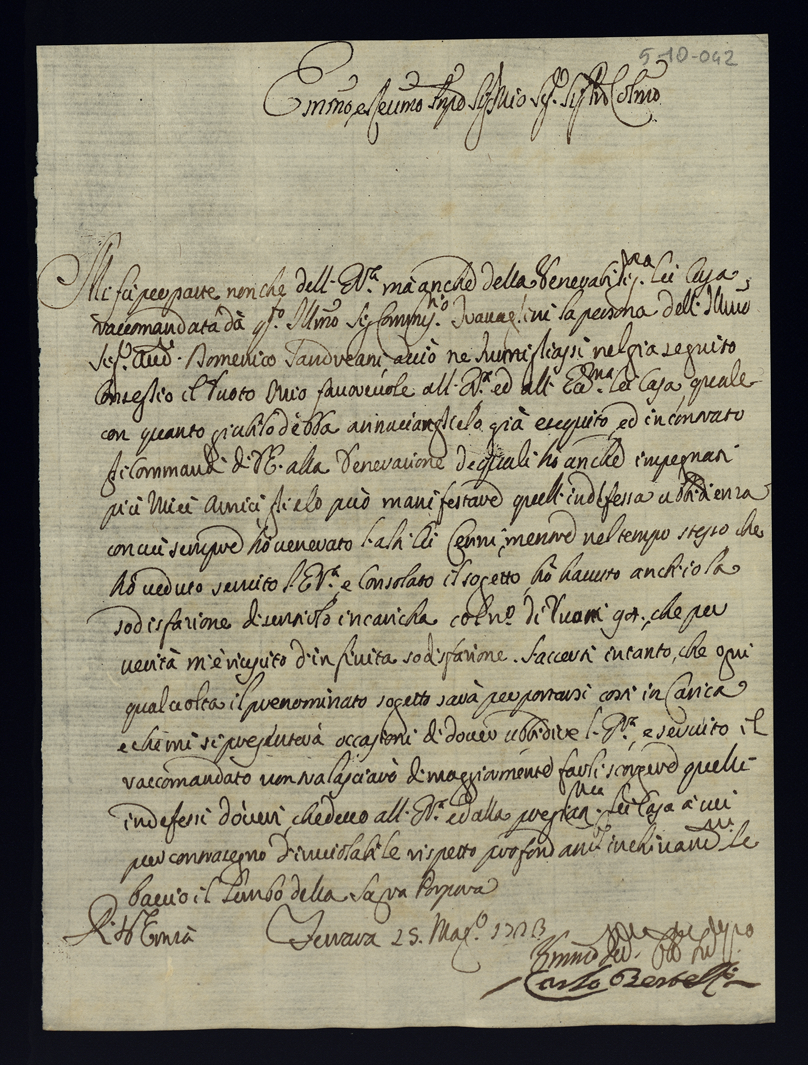 5-10-042
Emin̄o, e Reu̅mo Prn̄pe Sig. Mio Sig. Sig. Pro͂n Colmo
Mi fù per parte non che dell' E.V.ra mà anche della Venerabiliss.ma Lei Casa
raccomandata dà q.sto Illm̄o Sig. Commiss.rio la persona dell' Illmo
Sig.r Aud.r Domenico acciò ne humigliassi nel già seguito
Conseglio il Vuoto Mio favorevole all' E.V.ra ed all' Lei Casa quale
con quanto giubilo debba annuciarglielo, già eseguito, ed incontrato
gli Commandi di V.E. alla Venerazione de quali hò anche impegnati
più Miei Amici glielo può manifestare quell' indefessa ubbidienza
con cui sempre hò venerato li alti Lei Cenni, mentre nel tempo stesso che
hò veduto servito l'E.V.ra e Consolato il sogetto, hò havuto anch'io la
sodisfazione di servirlo in caricha col n.o di Vuoti che per
verità m'è riuscito d'infinita sodisfazione. S'accerti intanto, che ogni
qual volta il prenominato sogetto sarà per portarsi costì in Carica
e che mi si presenterà occasioni di dover ubbidire l' E.V.ra e servito il
raccomandato non tralasciarò di maggiormente farli scorgere quelli
indefessi doveri che devo all' E.V.ra ed alla prestan.ma Lei Casa à cui
per contrasegno d'inviolabile rispetto profondam.te inchinandomi Le
baccio il Lembo della Sagra Porpora
Di V.E. Em̄a Ferrara 25. Mag.o 1723
Carlo Bertelli